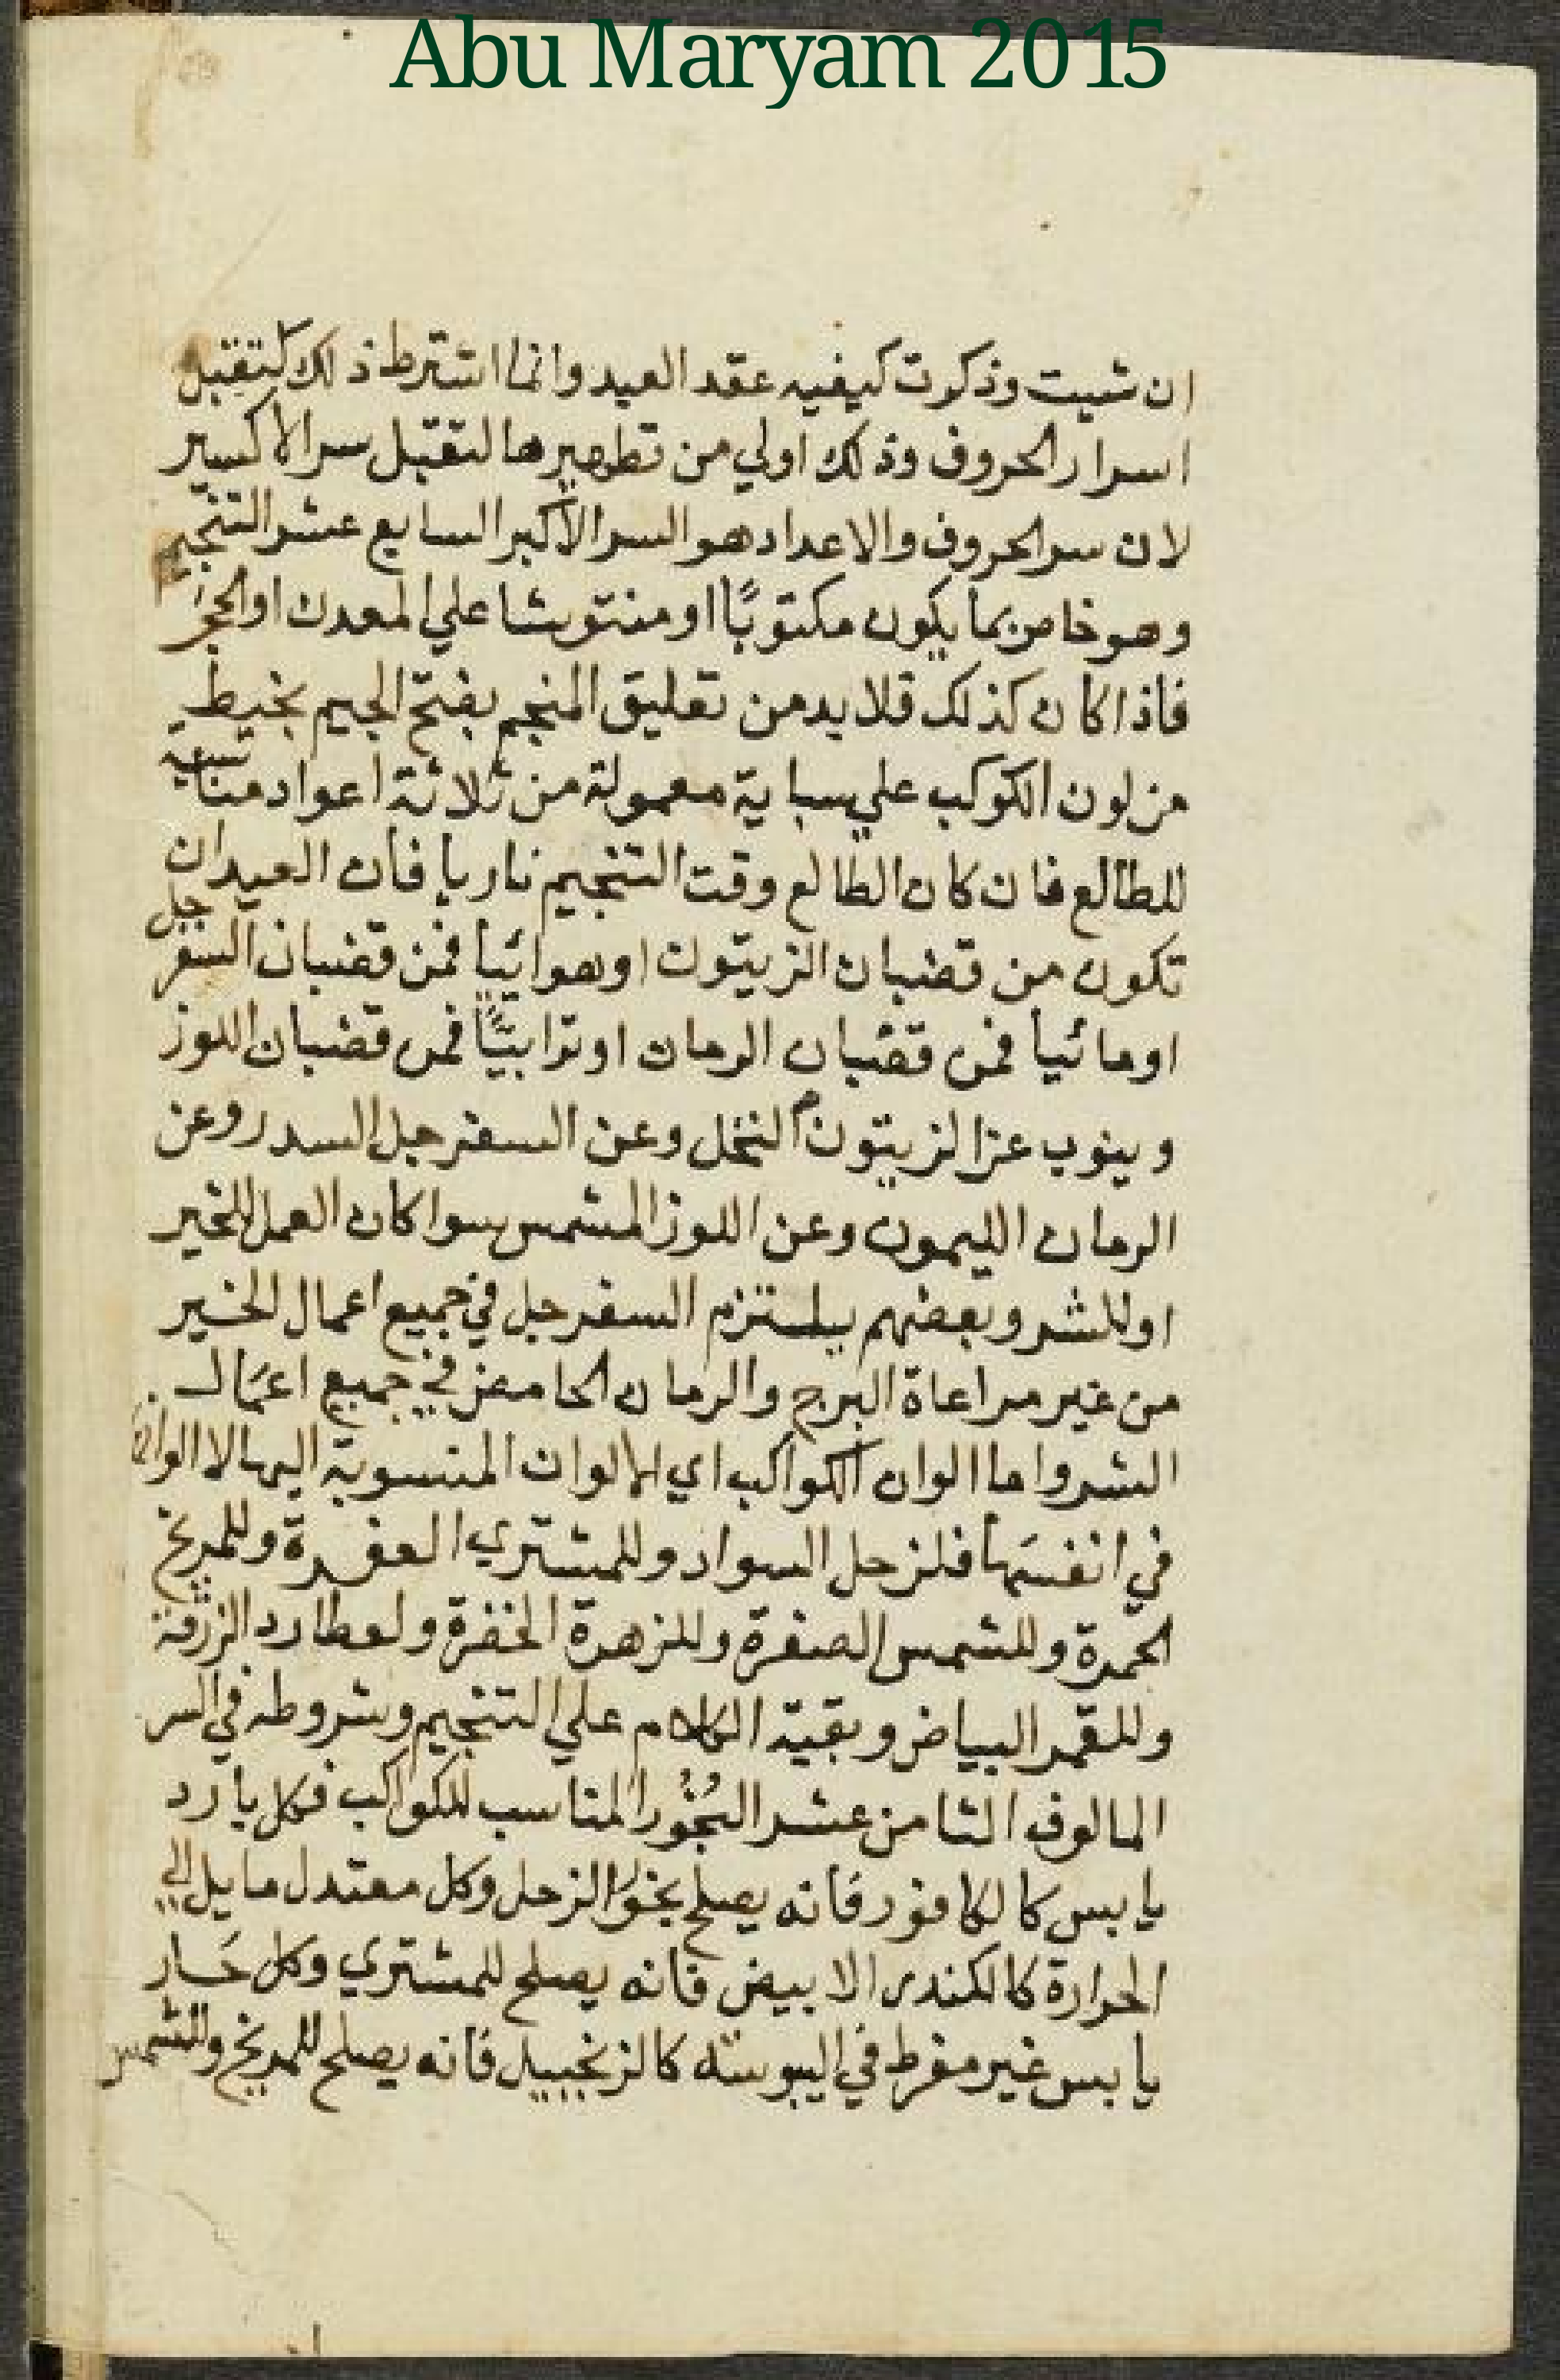 Abu Maryam 2015
ان شيت وذكرت كيفيه عقد العيد وانما اشترط ذلك لتقبل
اسرار الحروف وذلك اولي من تطهيرها لتقبل سر الاكسير
لان سر الحروف والاعداد هو السر الأكبر السابع عشر التنجيم
وهو خاص بما يكون مكتوبًا او منتوشا علي المعدن او الحجر
فاذا كان كذلك فلا بد من تعليق المنجم بفتح الجيم بخيط
من لون الكوكب علي سباية معمولة من ثلاثة اعواد مناسبه
للطالع فان كان الطالع وقت التنجيم ناريا فان العيدان
تكون من قضبان الزيتون او هوائيا فمن قضبان السفرجل
او مائيا فمن قضبان الرمان او ترابيًّا فمن قضبان اللوز
وينوب عن الزيتون النخل وعن السفرجل السدر وعن
الرمان الليمون وعن اللوز المشمس سوا كان العمل للخير
او للشر وبعضهم يلستزم السفرجل في جميع اعمال الخير
من غير مراعاة البرج والرمان الحامض في جميع اعمال
الشر واما الوان الكواكب اي الالوان المنسوبة اليها لا الوانها
في انفسها فلزحل السواد وللمشتري الغبرة وللمريخ
الحمرة وللشمس الصفرة وللزهرة الخضرة ولعطارد الزرقة
وللقمر البياض وبقية الكلام علي التنجيم وشروطه في السر
المالوف الثامن عشر البُخُور المناسب للكواكب فكل بارد
يابس كالكافور فانه يصلح بخورا لزحل وكل معتدل مايل الي
الحرارة كالكندر الابيض فانه يصلح للمشتري وكل حَار
يابس غير مفرط في اليبوسة كالزنجبيل فانه يصلح للمريخ وللشمس